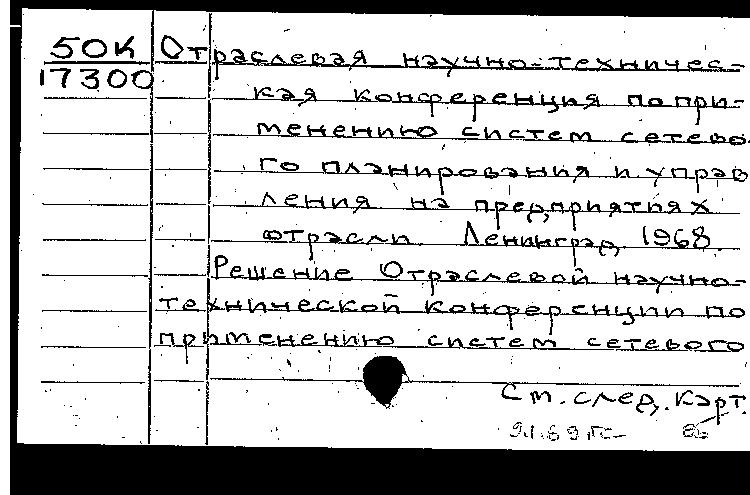 50К Отраслевая научно-техничес-
17300
кая конференция по при-
менению систем сетево
го планирования и управ
ления на предприятиях
отрасли. Ленинград, 1968.
Решение Отраслевой научно-
технической конференции по
применению систем сетевого
См. след. карт.